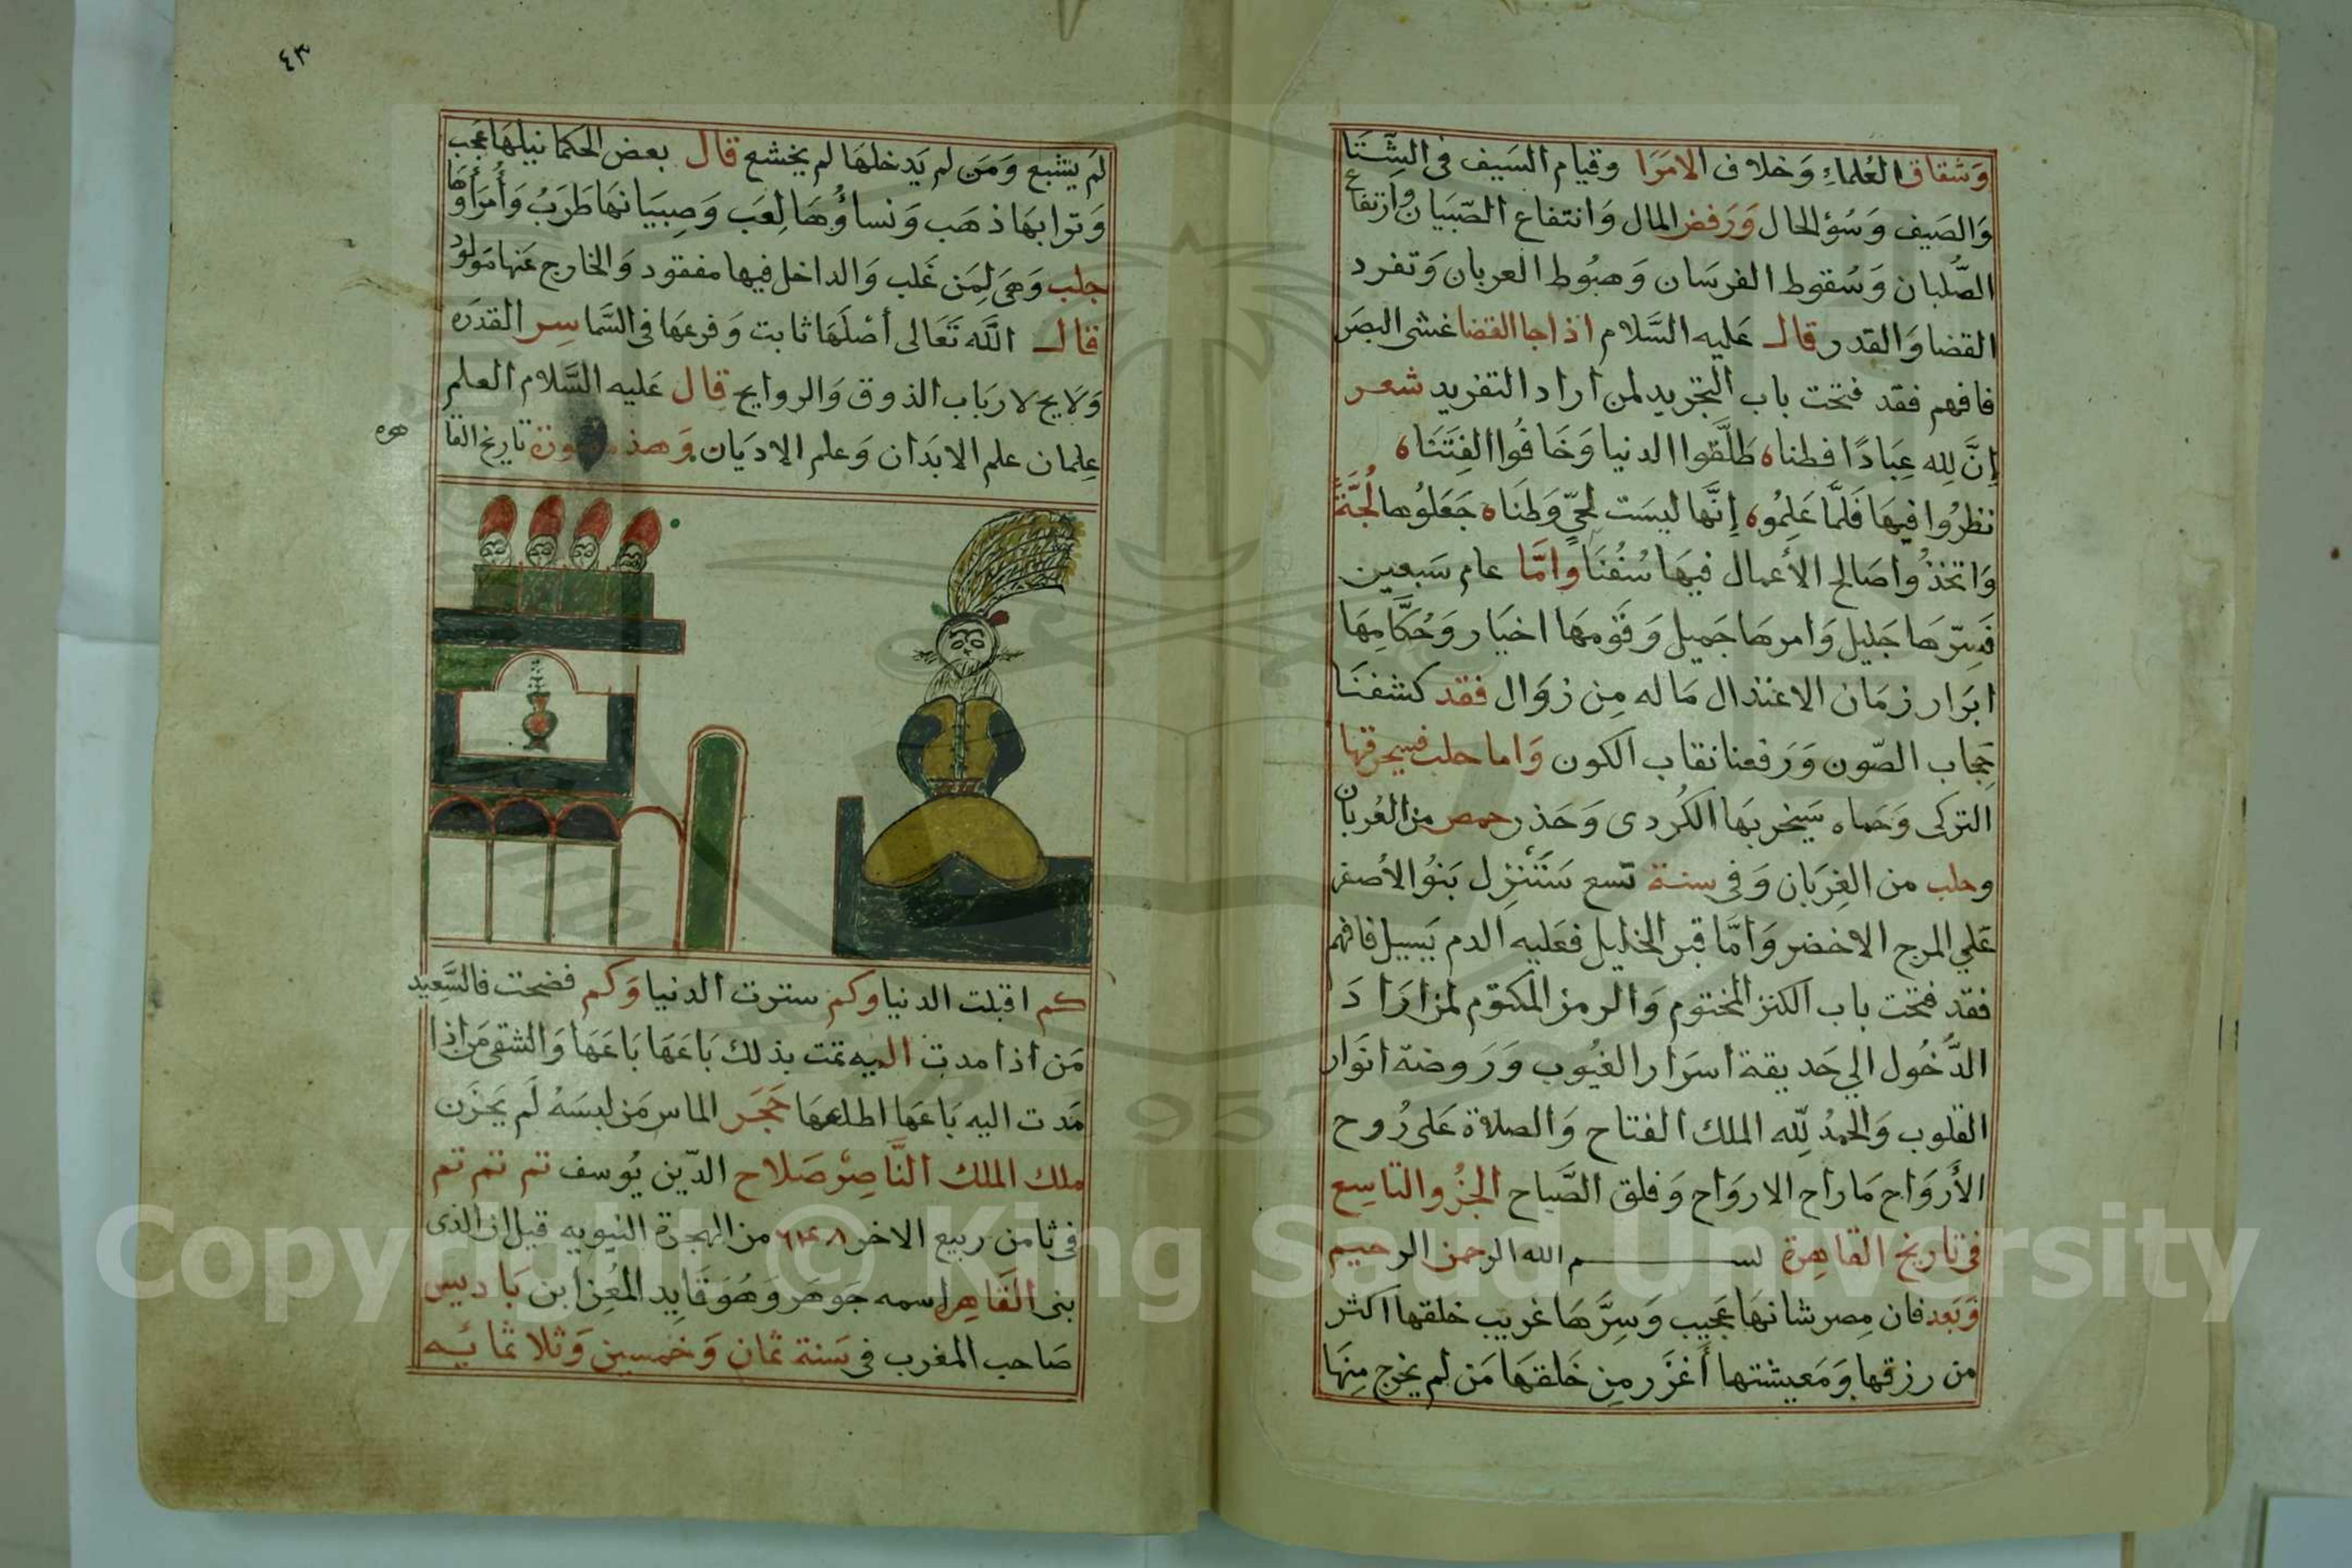 وَشقاق العُلماءِ وَخلاف الامَرَا وقيام السَيف فى الشِتَا
وَالصَيف وَسُؤ الحال وَرَفض المال وَانتفاع الصّبيَان وارتفاع
الصُّلبان وَسُقوط الفرسَان وَهبُوط العربان وَتفرد
القضا وَالقدر قال عَليه السَّلام اذا جا القضا غشى البصَر
فافهم فقد فتحت باب التجريد لمن اراد التفريد شعر
إنَّ لِله عِبَادًا فطنا ه طَلَّقوا الدنيا وَخَافُوا الفِتَنَا ه
نظرُوا فيهَا فَلَمَّا عَلِمُوا ه إنَّها ليسَت لِحَىّ وَطَنَا ه جَعَلوُها لُجَّةً
وَاتخذُوا صَالح الأعمال فيهَا سُفُنَا وامَّا عام سَبعين
فَسِرّهَا جَليل وَامرهَا جَميل وَقَومهَا اخيَار وَحُكَّامِهَا
ابرَار زمَان الاعتدال مَا له مِن زوَال فقد كشفنَا
حِجاب الصّون وَرَفعنا نقاب الكون وَاما حلب فيحرقها
التركى وَحَماه سَيخربهَا الكُردى وَحَذر حمص من العُربان
وحلب من الغِربَان وَفى سنة تسع سَتَنْزِل بَنوُ الأصفر
عَلي المرج الاخضر وَامَّا قبر الخليل فعَليه الدم يَسيل فافهم
فقد فتحت باب الكنز المختوم وَالرمز المكتوم لمن ارَادَ
الدُّخُول الي حَديقة اسرَار الغيُوب وَرَوضة انوَار
القلوب وَالحَمدُ لِلّه الملك الفتاح وَالصلاة عَلى رُوح
الأَروَاح مَا راح الاروَاح وَفلق الصَّباح الجُزو التاسِع
فى تاريخ القاهِرة بســـــم الله الرحمن الرحيم
وَبَعد فان مِصر شانهَا عَجيب وَسِرّهَا غريب خلقها اكثر
من رزقها وَمَعيشتها أغزَر مِن خَلقهَا مَن لم يخرج مِنهَا
٤٣
لم يشبع وَمَن لم يَدخلهَا لم يخشع قال بعض الحكما نيلهَا عَجب
وَترابهَا ذهَب وَنساؤُهَا لِعَب وَصِبيَانهَا طَرَبُ وَأُمَرَاؤهَا
جلب وَهىَ لِمَن غَلب وَالداخل فيها مفقود وَالخارج عَنها مَولود
قال اللَّه تَعَالى أصْلهَا ثابت وَفرعهَا فى السَّما سِر القدرَه
وَلايح لاربَاب الذوق وَالروايح قال عَليه السَّلام العلم
عِلمان علم الابدَان وَعلم الاديَان وَهذه صورة تاريخ القا
هره
كم اقبلت الدنيا وكم سترت الدنيا وَكم فضحت فالسَّعيد
مَن اذا مدت اليه تمت بذلك بَاعَهَا بَاعَهَا وَالشقى مَن اذا
مَدت اليه بَاعَها اطلعهَا حَجَر الماس مَن لبسَهُ لَم يَحزَن
ملك الملك النَّاصِر صَلاح الدّين يُوسف تم تم تم تم
فى ثامن ربيع الاخر من الهجرة النبويه قيل ان الذى
بنى القَاهِرَ اسمه جَوهَر وَهُوَ قَايد المُعِز ابن بَاديس
صَاحب المغرب فى سَنة ثمان وَخمسين وَثلاثمائيه
Copyright © King Saud University